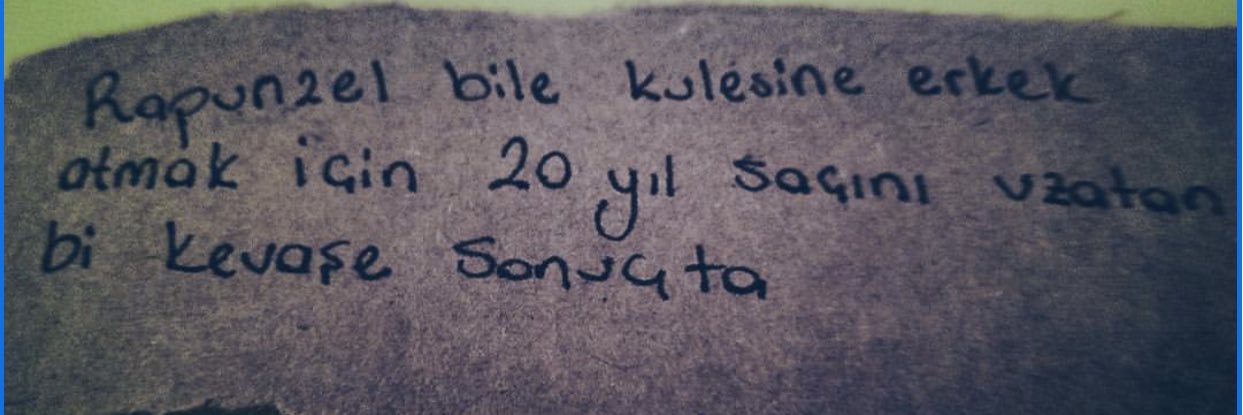 Rapunzel bile kulesine erkek
atmak için 20 yıl saçını uzatan
bi kevaşe sonuçta